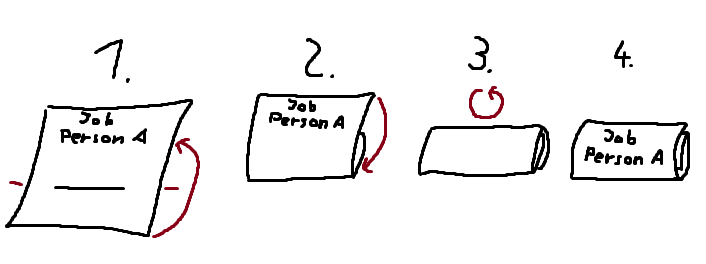 1.
2.
3.
4.
Job
Person A
Job
Person A
Job
Person A